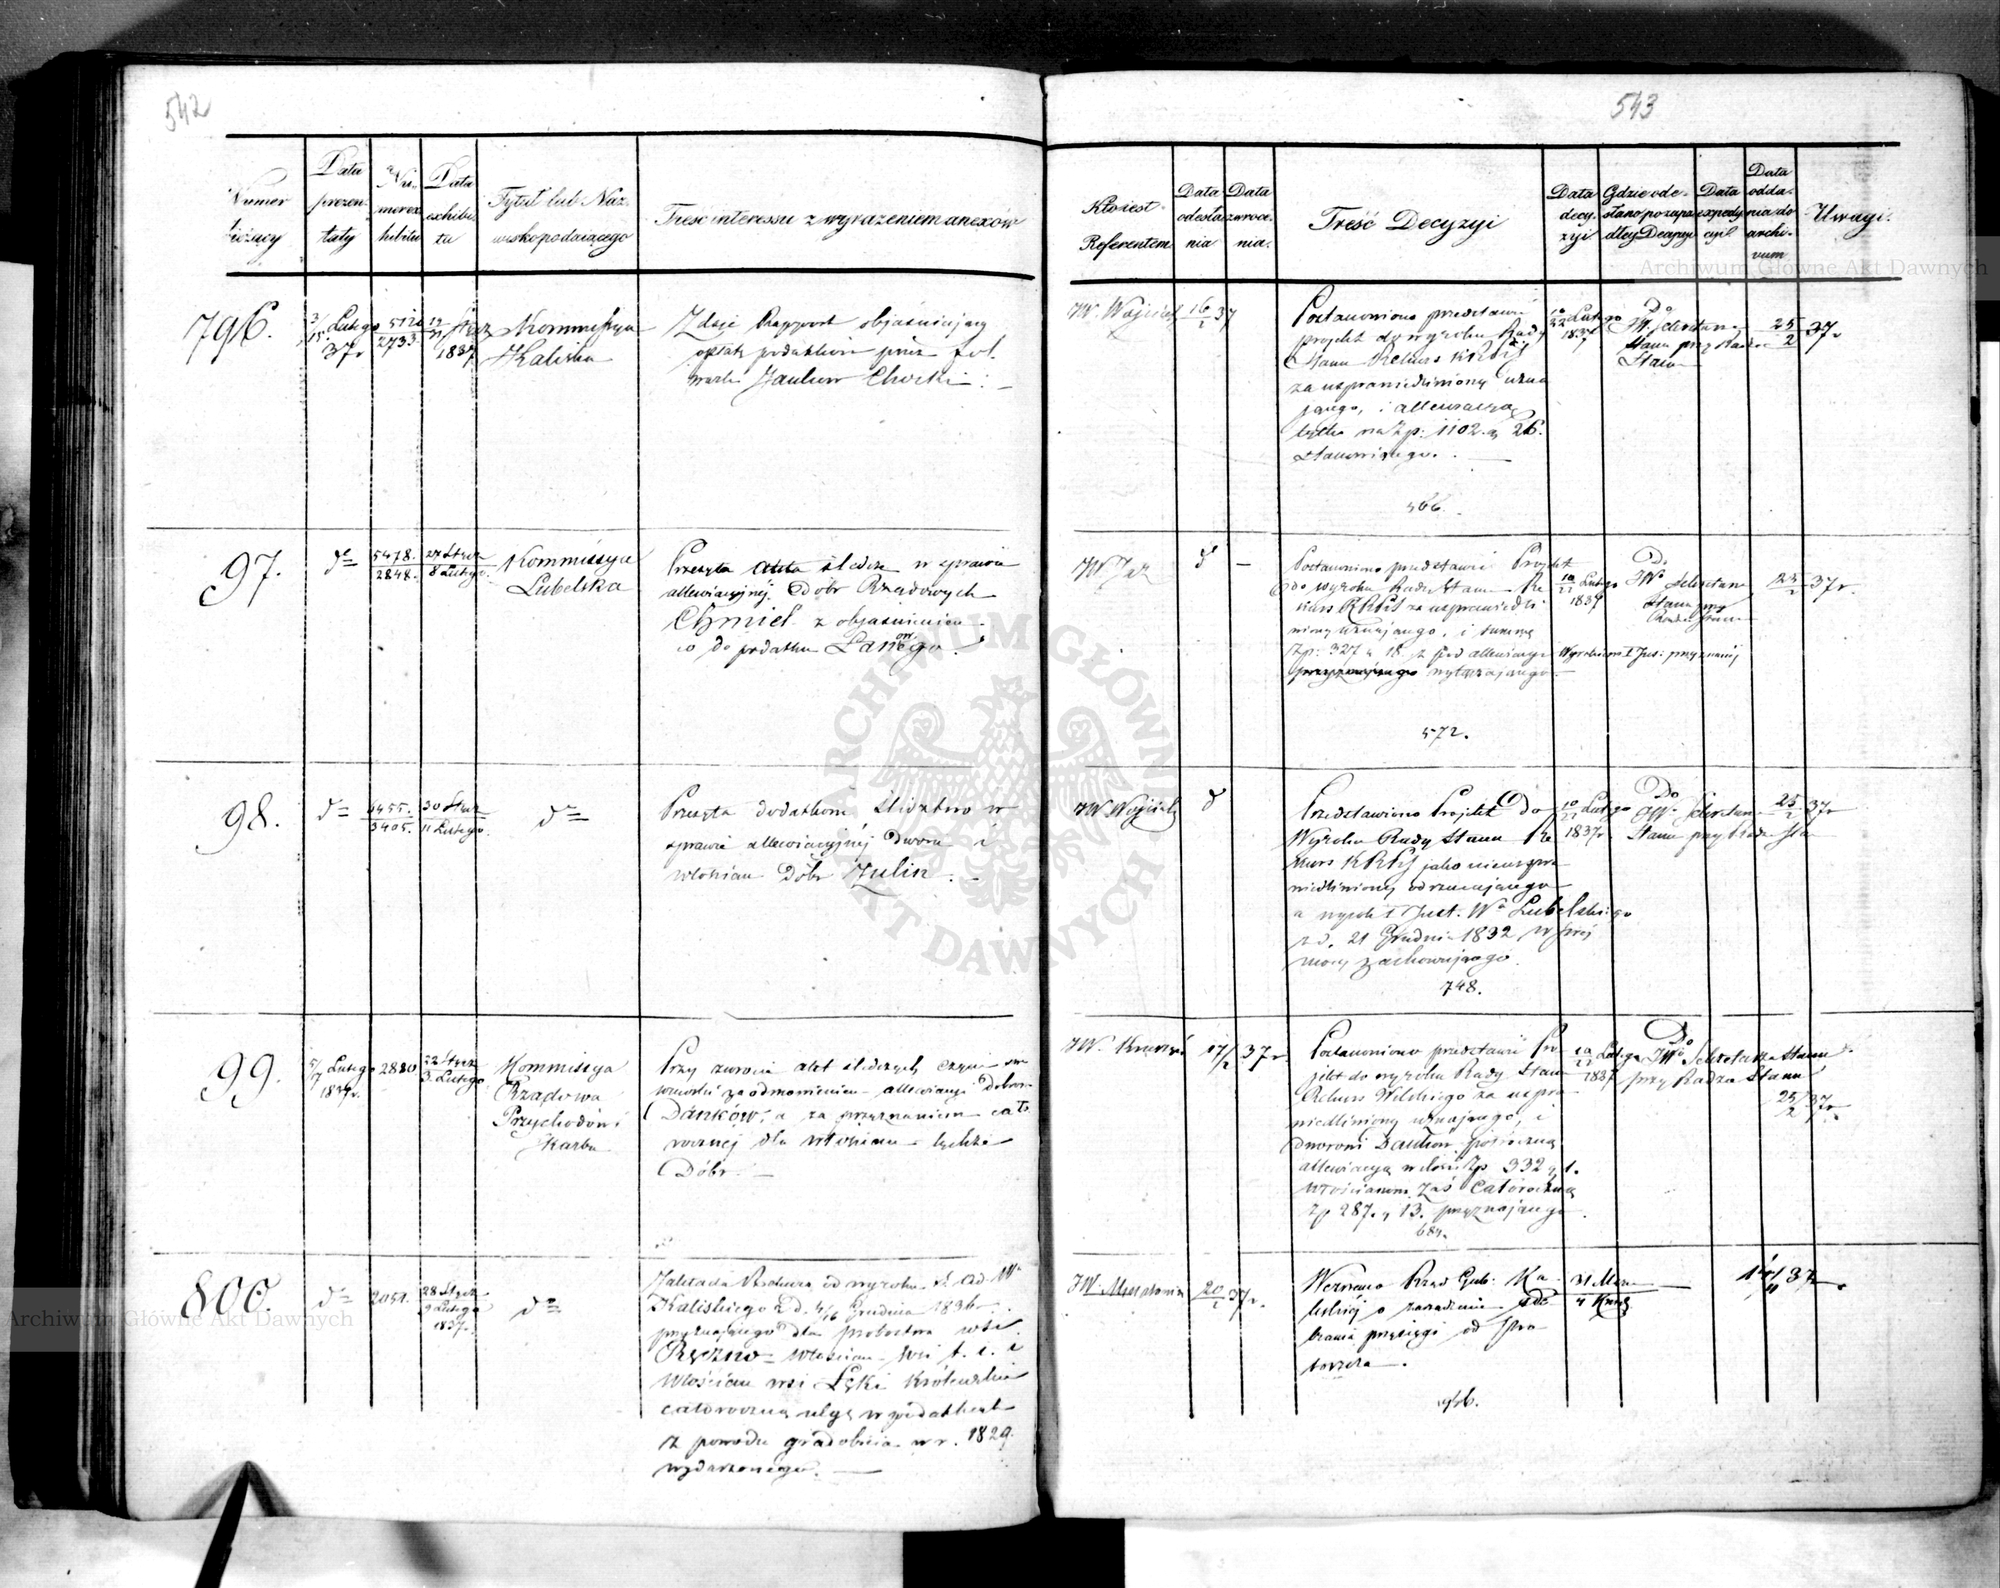 542
Numer bieżący
Data prezentaty
Numer exhibitu
Data exhibitu
Tytuł lub Nazwisko podaiącego
Treść interessu z wyrażeniem anexów
796.
3/15 Lutego 37r
512 / 2733
12/31 Stycz 1837
Kommissya
Kaliska
Zdaje Rapport objaśniający
opłatę podatków przez fol
wark Chocki
97.
dto
5478. / 2848.
27 Stycz / 8 Lutego
Kommissya
Lubelska
Przesyła akta śledcze w sprawie
allewiacyjnej Dóbr Rządowych
Chmiel z objaśnieniem
co do podatku Łanowego.
98.
dto
6455. / 3405.
30 Stycz / 11 Lutego
dto
Przesyła dodatkowe śledztwo w
sprawie allewiacyjnej Dworu i
włościan Dóbr Żulin.
99.
5/7 Lutego 1837r.
2880
22 Stycz / 3 Lutego
Kommissya
Rządowa
Przychodów i
Skarbu
Przy zwrocie akt śledczych czyni
za odmówieniem allewiacyi Dobrom
Danków, a za przyznaniem cało
rocznej dla włościan tychże
Dóbr.
800.
dto
2051.
28 Stycz / 9 Lutego 1837r.
dto
Zakłada Rekurs od wyroku S. Ad. Wa
Kaliskiego z d. 4/16 Grudnia 1836r.
przyznającego dla probostwa wsi
Ręczno włościan wsi t. i. i
włościan wsi Łęki Królewskie
całoroczną ulgę w podatkach
z powodu gradobicia w r. 1829
wydarzonego.
543
Kto iest Referentem
Data odesłania
Data zwrócenia.
Treść Decyzyi
Data decyzyi
Gdzie odesłano po zapadłey Decyzyi
Data expedycyi
Data oddania do archivum
Uwagi.
JW. Wojcicki
16/2 37
Postanowiono przedstawić
projekt do wyroku Rady
Stanu Rekurs KRPiS
za usprawiedliwiony uzna
jącego, i allewiacyą
tylko na Zp. 1102 g 26.
stanowiącego.
10/22 Lutego 1837
Do
JW. Sekretarza
Stanu przy Radzie
Stanu
25/2 37r
566.
JW
dto
Postanowiono przedstawić Projekt
do wyroku Rady Stanu Re
kurs KRPiS za usprawiedli
wiony uznającego, i summę
Zp. 327 g 18. z pod allewiacyi
przyznającego wyłączającego
Lutego 1837
Do
JWo Sekretarza
Stanu przy
Radzie Stanu
37r.
Wyrokiem I Jns: przyznanej
572.
JW Wojcicki
dto
Przedstawiono Projekt Do
Wyroku Rady Stanu Re
kurs KRPiS jako nieuspra
wiedliwiony odrzucającego
a wyrok I Just. Wa Lubelskiego
z d. 21 Grudnia 1832 w swej
mocy zachowującego.
Lutego 1837r.
Do
JWo Sekretarza
Stanu przy Radzie Sta
25/2 37r
748.
JW.
17/2 37r
Postanowiono przedstawić Pro
jekt do wyroku Rady Stanu
Rekurs za uspra
wiedliwiony uznającego, i
dworowi Danków półroczną
allewiacyą w ilości Zp 332 g 1.
włościanom zaś całoroczną
Zp 287. g 13. przyznającego
Lutego 1837
Do
JWo Sekretarza Stanu
przy Radzie Stanu
25/2 37r
684.
JW.
20/2 37r.
Wezwano Rząd Gub: Ka
liskiej o zarządzenie ode
brania przysięgi od
31 Mar
37r
Archiwum Główne Akt Dawnych
Archiwum Główne Akt Dawnych
ARCHIWUM GŁÓWNE AKT DAWNYCH